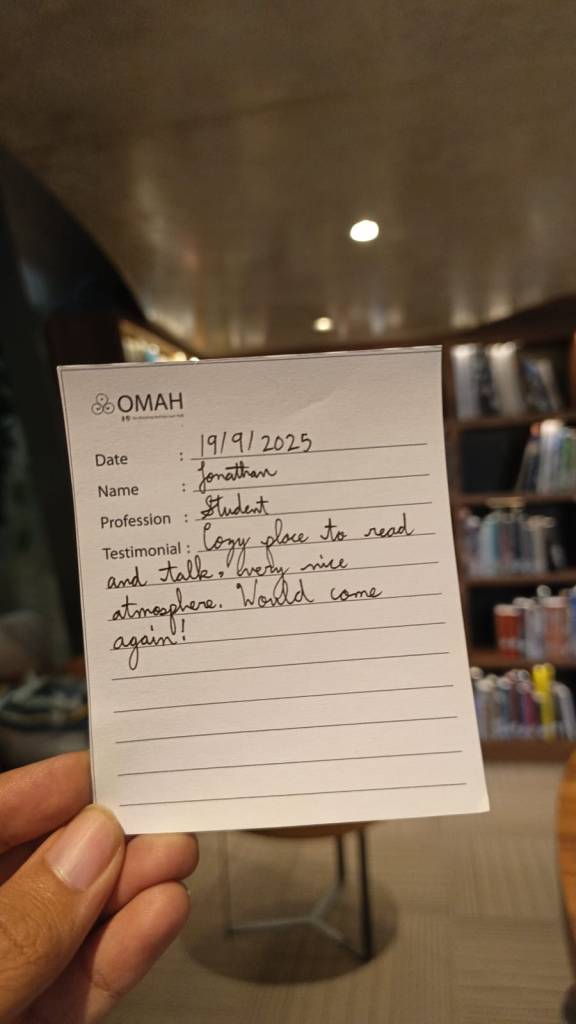 OMAH
Date : 19/9/2025
Name : Jonathan
Profession : Student
Testimonial : Cozy place to read
and talk, very nice
atmosphere. Would come
again!